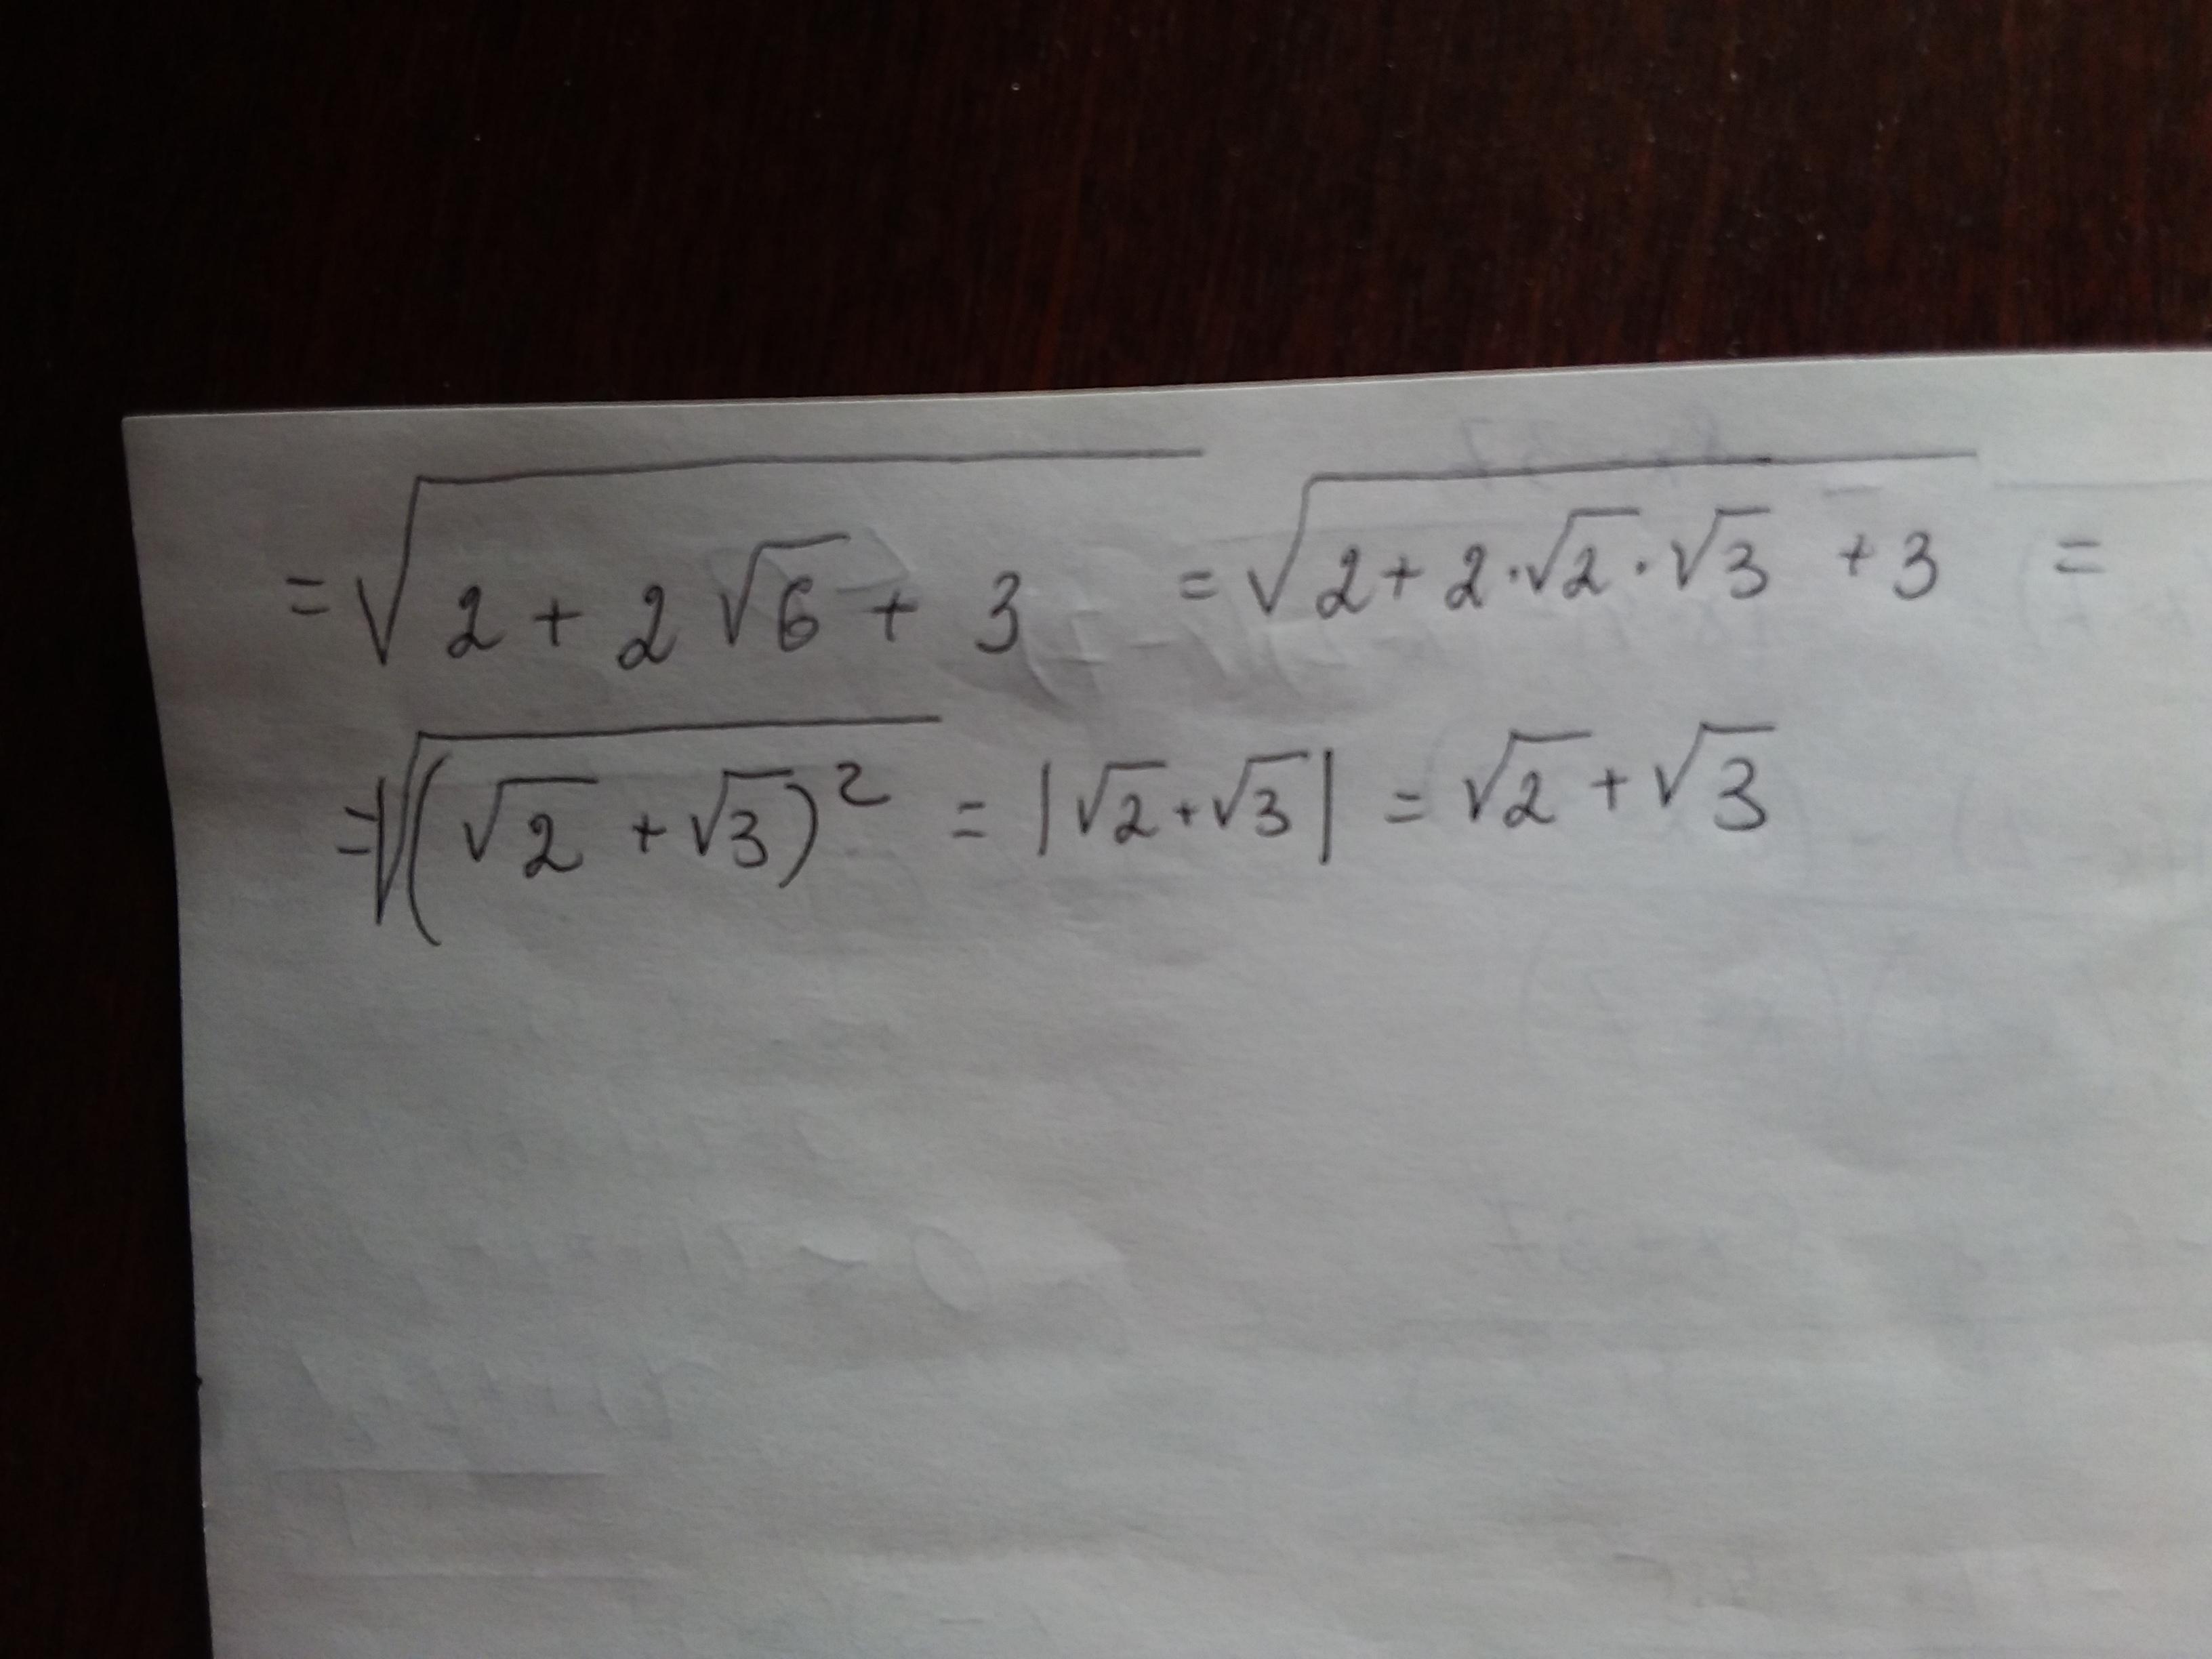 = √(2 + 2√6 + 3) = √(2 + 2·√2·√3 + 3) =
= √((√2 + √3)²) = |√2 + √3| = √2 + √3